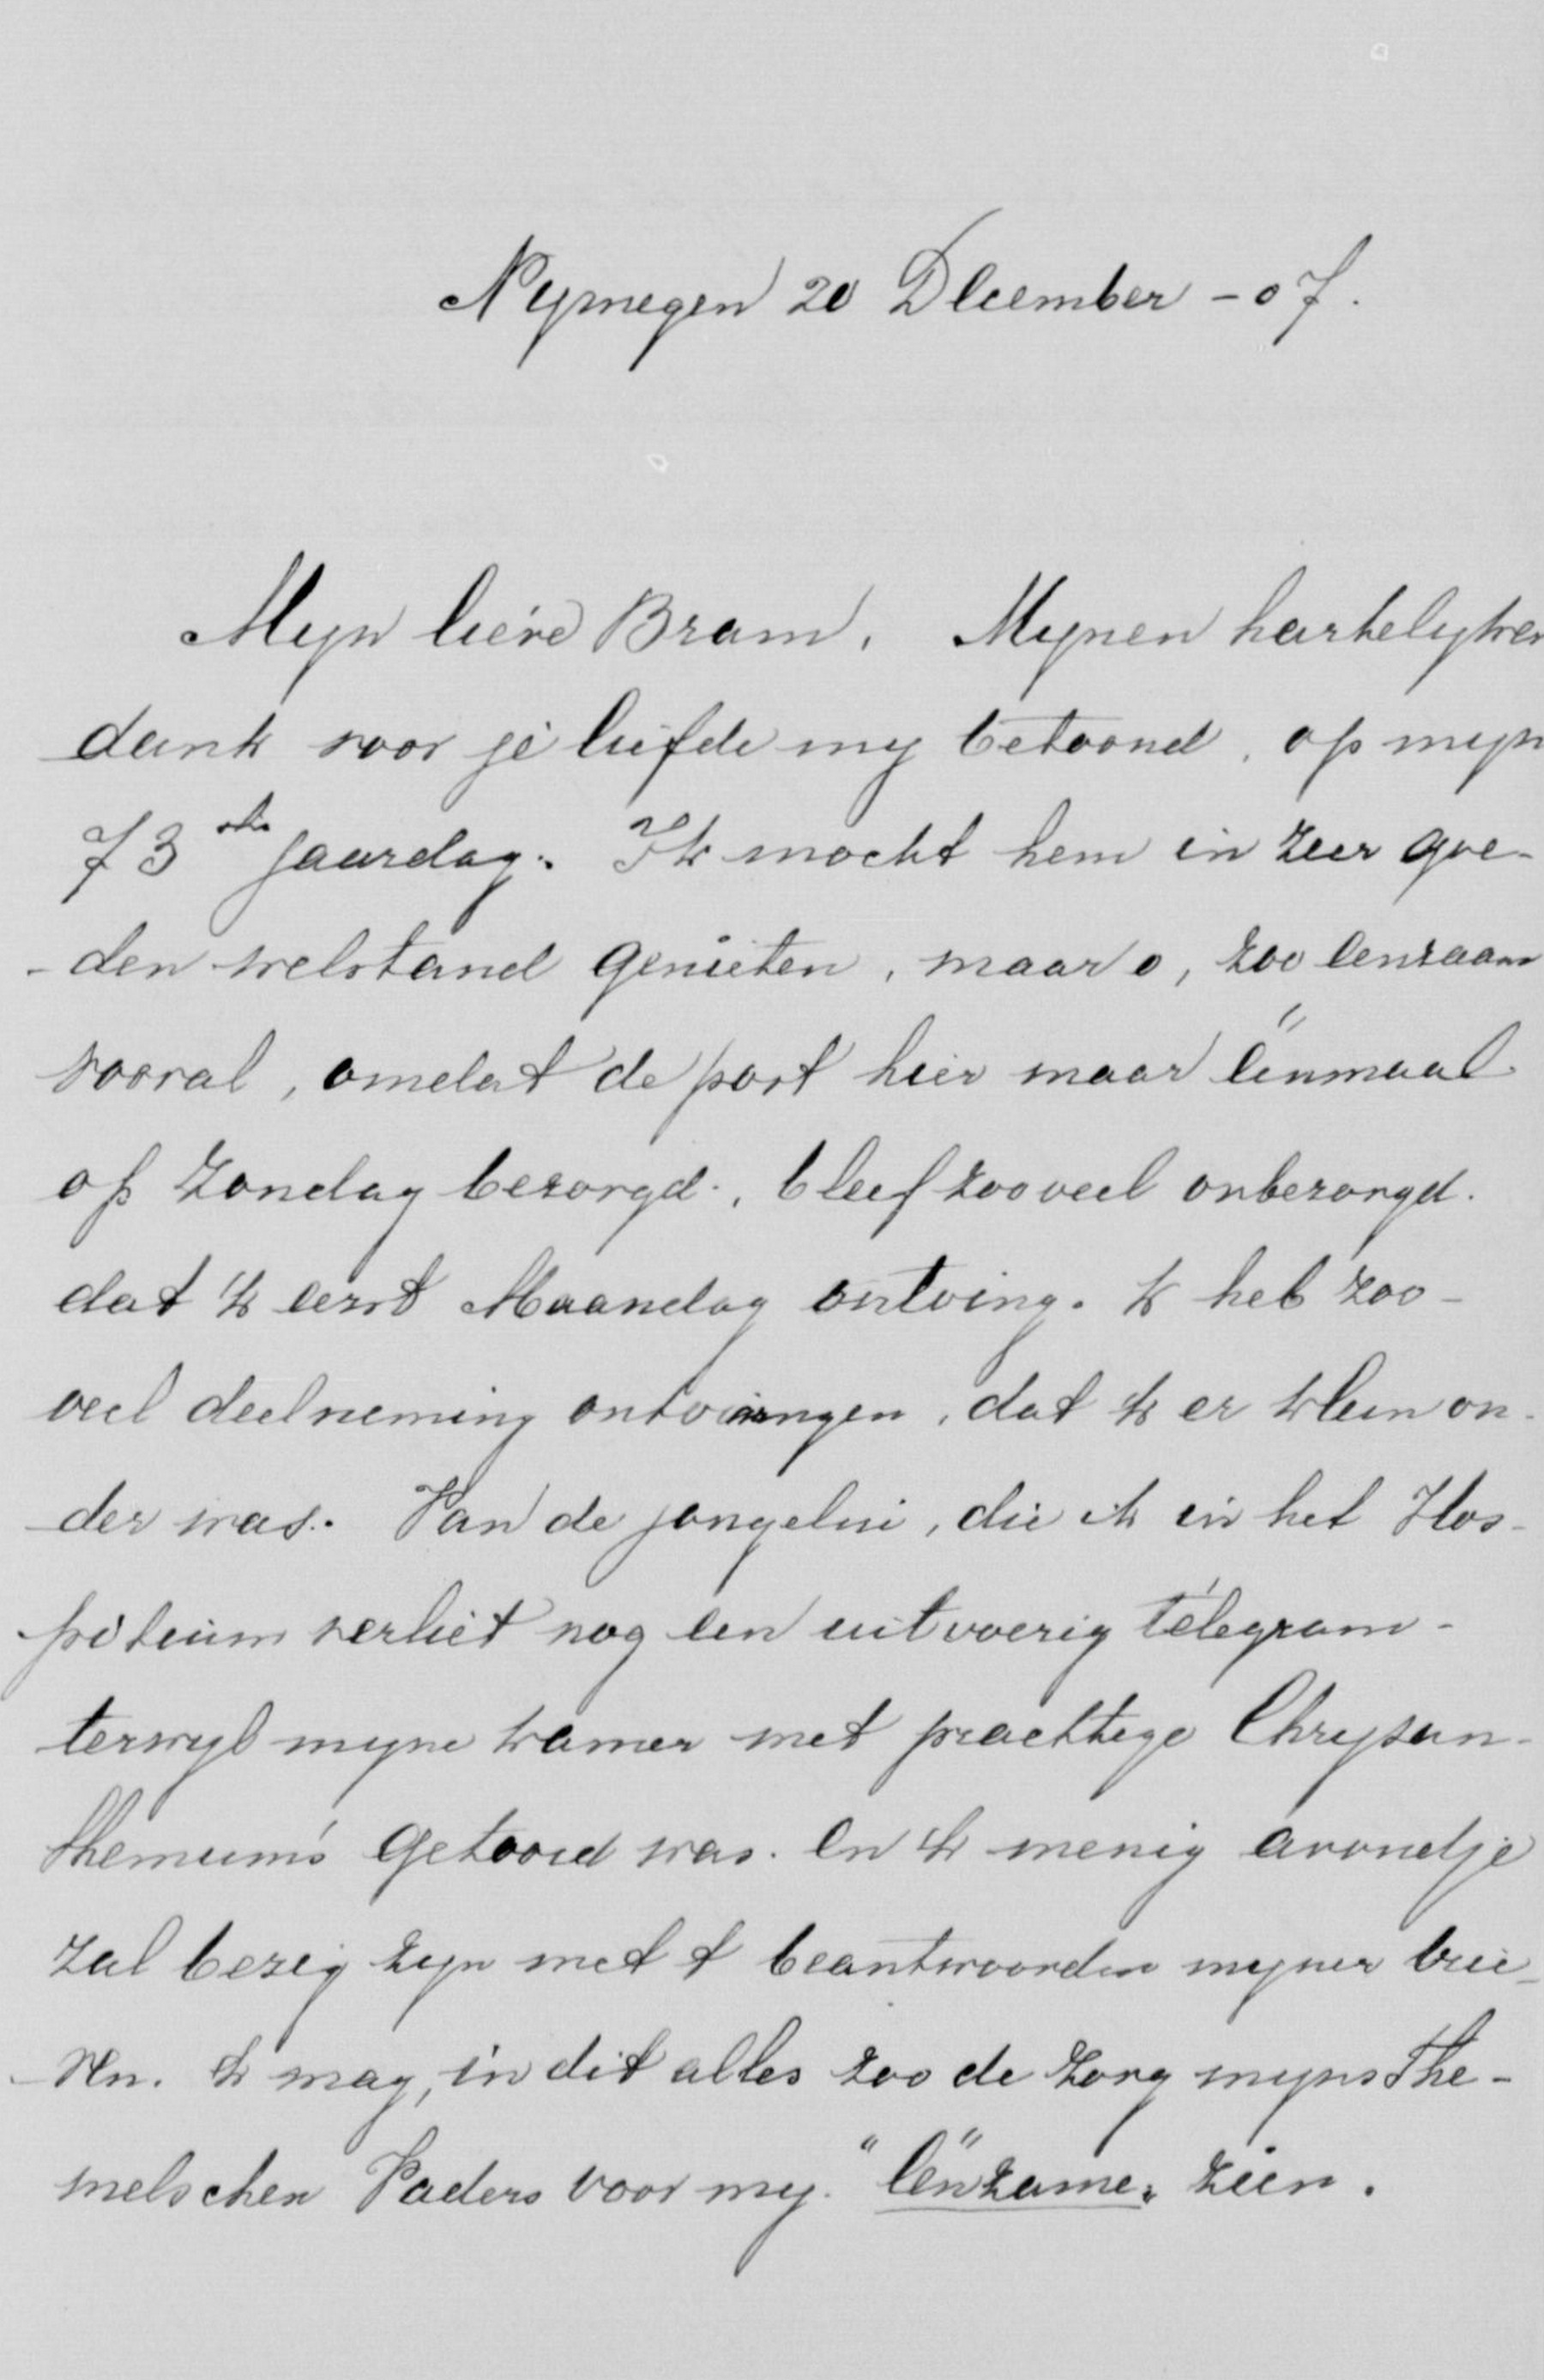 Nymegen 20 December - 07.
Myn lieve Bram. Mynen hartelyken
dank voor je liefde my betoond, op myn
73ste jaardag. Ik mocht hem in zeer goe-
den welstand genieten, maar o, zoo eenzaam
vooral, omdat de post hier maar éénmaal
op Zondag bezorgd., bleef zooveel onbezorgd.
dat 'k eerst Maandag ontving. 'k heb zoo-
veel deelneming ontvangen, dat 'k er klein on-
der was. Van de jongelui, die ik in het Hos-
pitium verliet nog een uitvoerig télegram-
terwyl myne kamer met prachtige Chrysan-
themum's getooid was. En 'k menig avondje
zal bezig zyn met 't beantwoorden myner brie-
ven. 'k mag, in dit alles zoo de zorg myns He-
melschen Vaders voor my. "éénzame" zien.